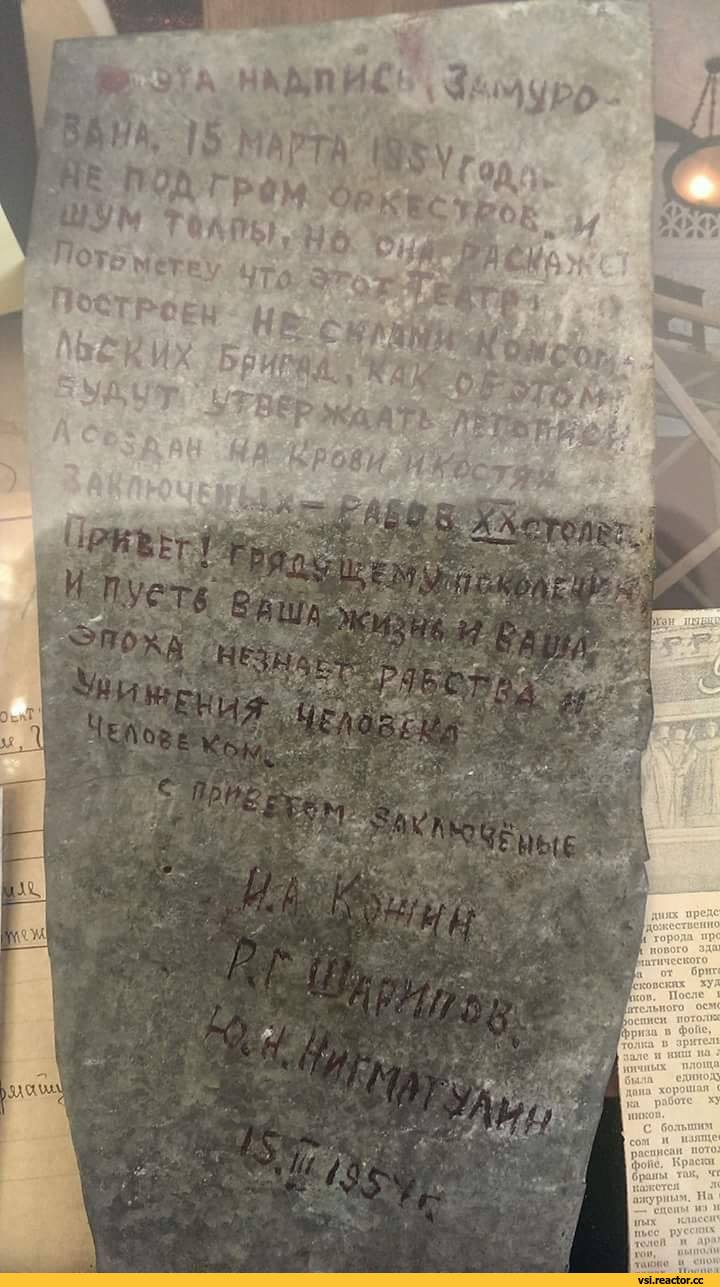 ЭТА НАДПИСЬ ЗАМУРО-
ВАНА. 15 МАРТА 1954 ГОДА-
НЕ ПОД ГРОМ ОРКЕСТРОВ. И
ШУМ ТОЛПЫ. НО ОНА РАСКАЖЕТ
ПОТОМСТВУ ЧТО ЭТОТ ТЕАТР
ПОСТРОЕН НЕ СИЛАМИ КОМСОМ-
ЛЬСКИХ БРИГАД, КАК ОБ ЭТОМ
БУДУТ УТВЕРЖДАТЬ ЛЕТОПИСИ
А СОЗДАН НА КРОВИ И КОСТЯХ
ЗАКЛЮЧЕНЫХ — РАБОВ XX СТОЛЕТ.
ПРИВЕТ! ГРЯДУЩЕМУ ПОКОЛЕНИЮ
И ПУСТЬ ВАША ЖИЗНЬ И ВАША
ЭПОХА НЕЗНАЕТ РАБСТВА И
УНИЖЕНИЯ ЧЕЛОВЕКА
ЧЕЛОВЕКОМ.
С ПРИВЕТОМ ЗАКЛЮЧЁНЫЕ
И.А КОЖИН
Р.Г ШАРИПОВ.
Ю.Н. НИГМАТУЛИН
15.III 1954 г.
днях предс
дожественно
города пр
нового зда
матического
а от бриг
сковских худ
ков. После
ательного осмо
росписи потолко
фриза в фойе,
толка в зрител
зале и ниш на л
ничных площа
была единоду
дана хорошая
ка работе ху
ников.
С большим
сом и изяще
расписан пото
фойе. Краски
браны так, чт
кажется л
ажурным. На
— сцены из и
ных класси
пьес русских
телей и дра
гов, выполн
также в спок
vsi.reactor.cc